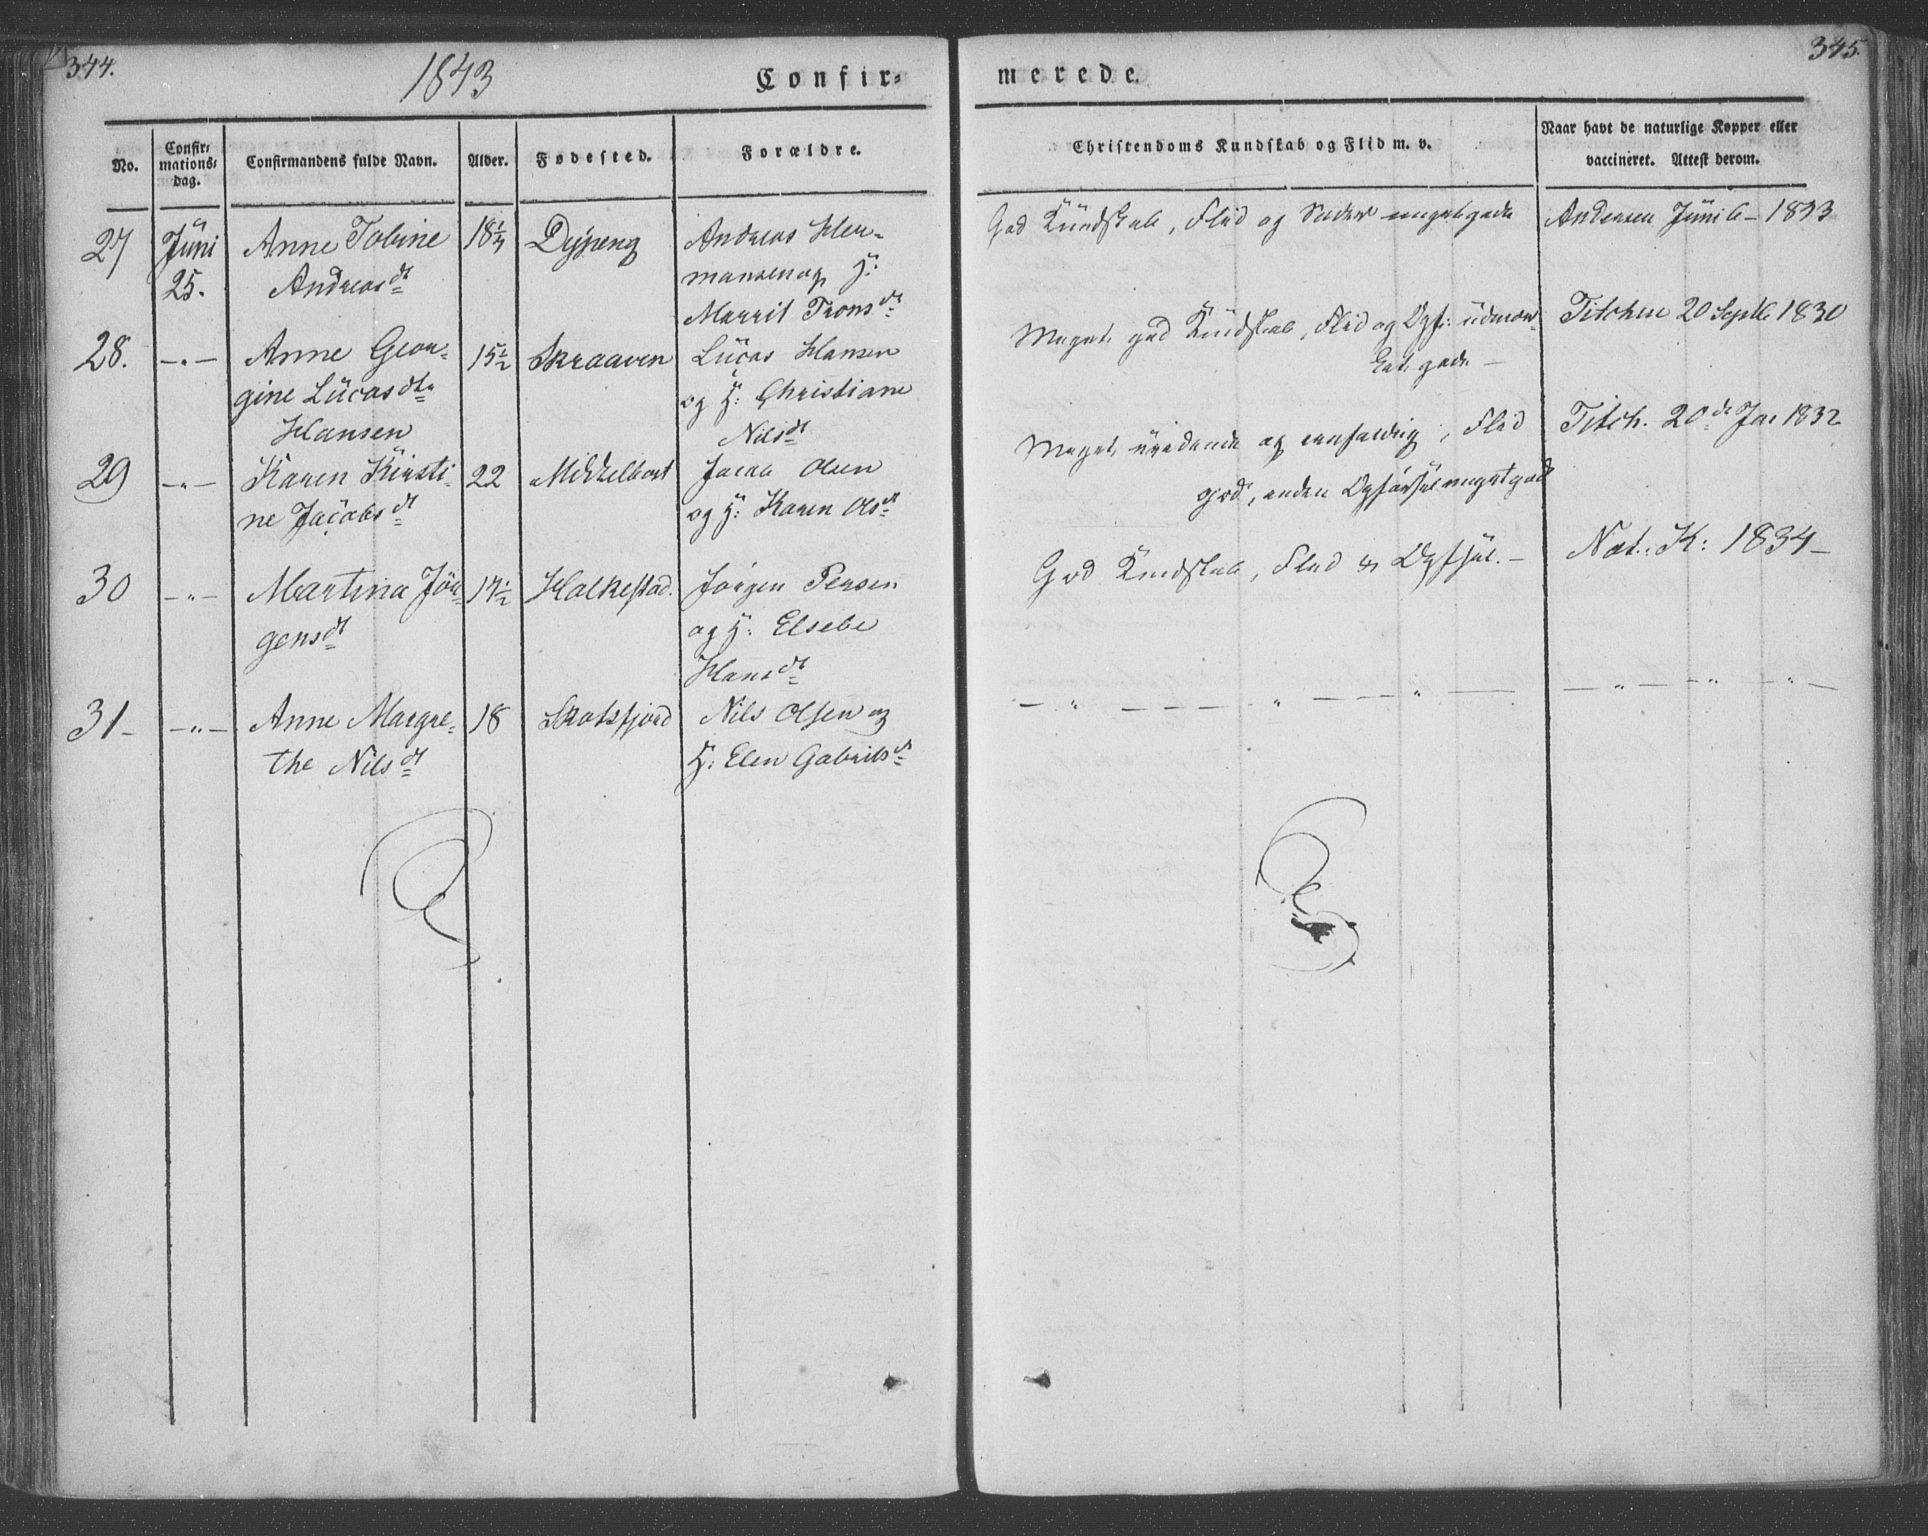 344.
1843
Confir-
merede.
345.
No.
Confir-
mations-
dag.
Confirmandens fulde Navn.
Alder.
Fødested.
Forældre.
Christendoms Kundskab og Flid m. v.
Naar havt de naturlige Kopper eller
vaccineret. Attest derom.
27
Juni
25.
Anne Toline
Andreasdt
18 1/4
Dypeng
Andreas Her-
mansen og H:
Marrit Tronsdt
God Kundskab, Flid og Sæder meget gode
Andersen Juni 6 - 1833
28.
-"-
Anne Geor-
gine Lucasdt
Hansen
15 1/2
Skraaven
Lucas Hansen
og H: Christiane
Nilsdt
Meget god Kundskab, Flid og Opf: udmær-
ket gode -
Titchen 20 Septb 1830
29
-"-
Karen Kirsti-
ne Jacobsdt
22
Mikkelbort
Jacob Olsen
og H: Karen Olsdt
Meget og eenfoldig, Flid
god, anden Opførsel meget god
Titch. 20de Ja 1832
30
-"-
Martina Jör-
gensdt
17 1/2
Holkestad.
Jörgen Persen
og H: Elsebe
Hansdt
God Kundskab, Flid & Opfsel. -
Nat: K: 1834 -
31 -
-"-
Anne Margre-
the Nilsdt
18
Skotsfjord
Nils Olsen og
H: Elen Gabrilsdt
- " - - - " - - " -
- " - " - " -